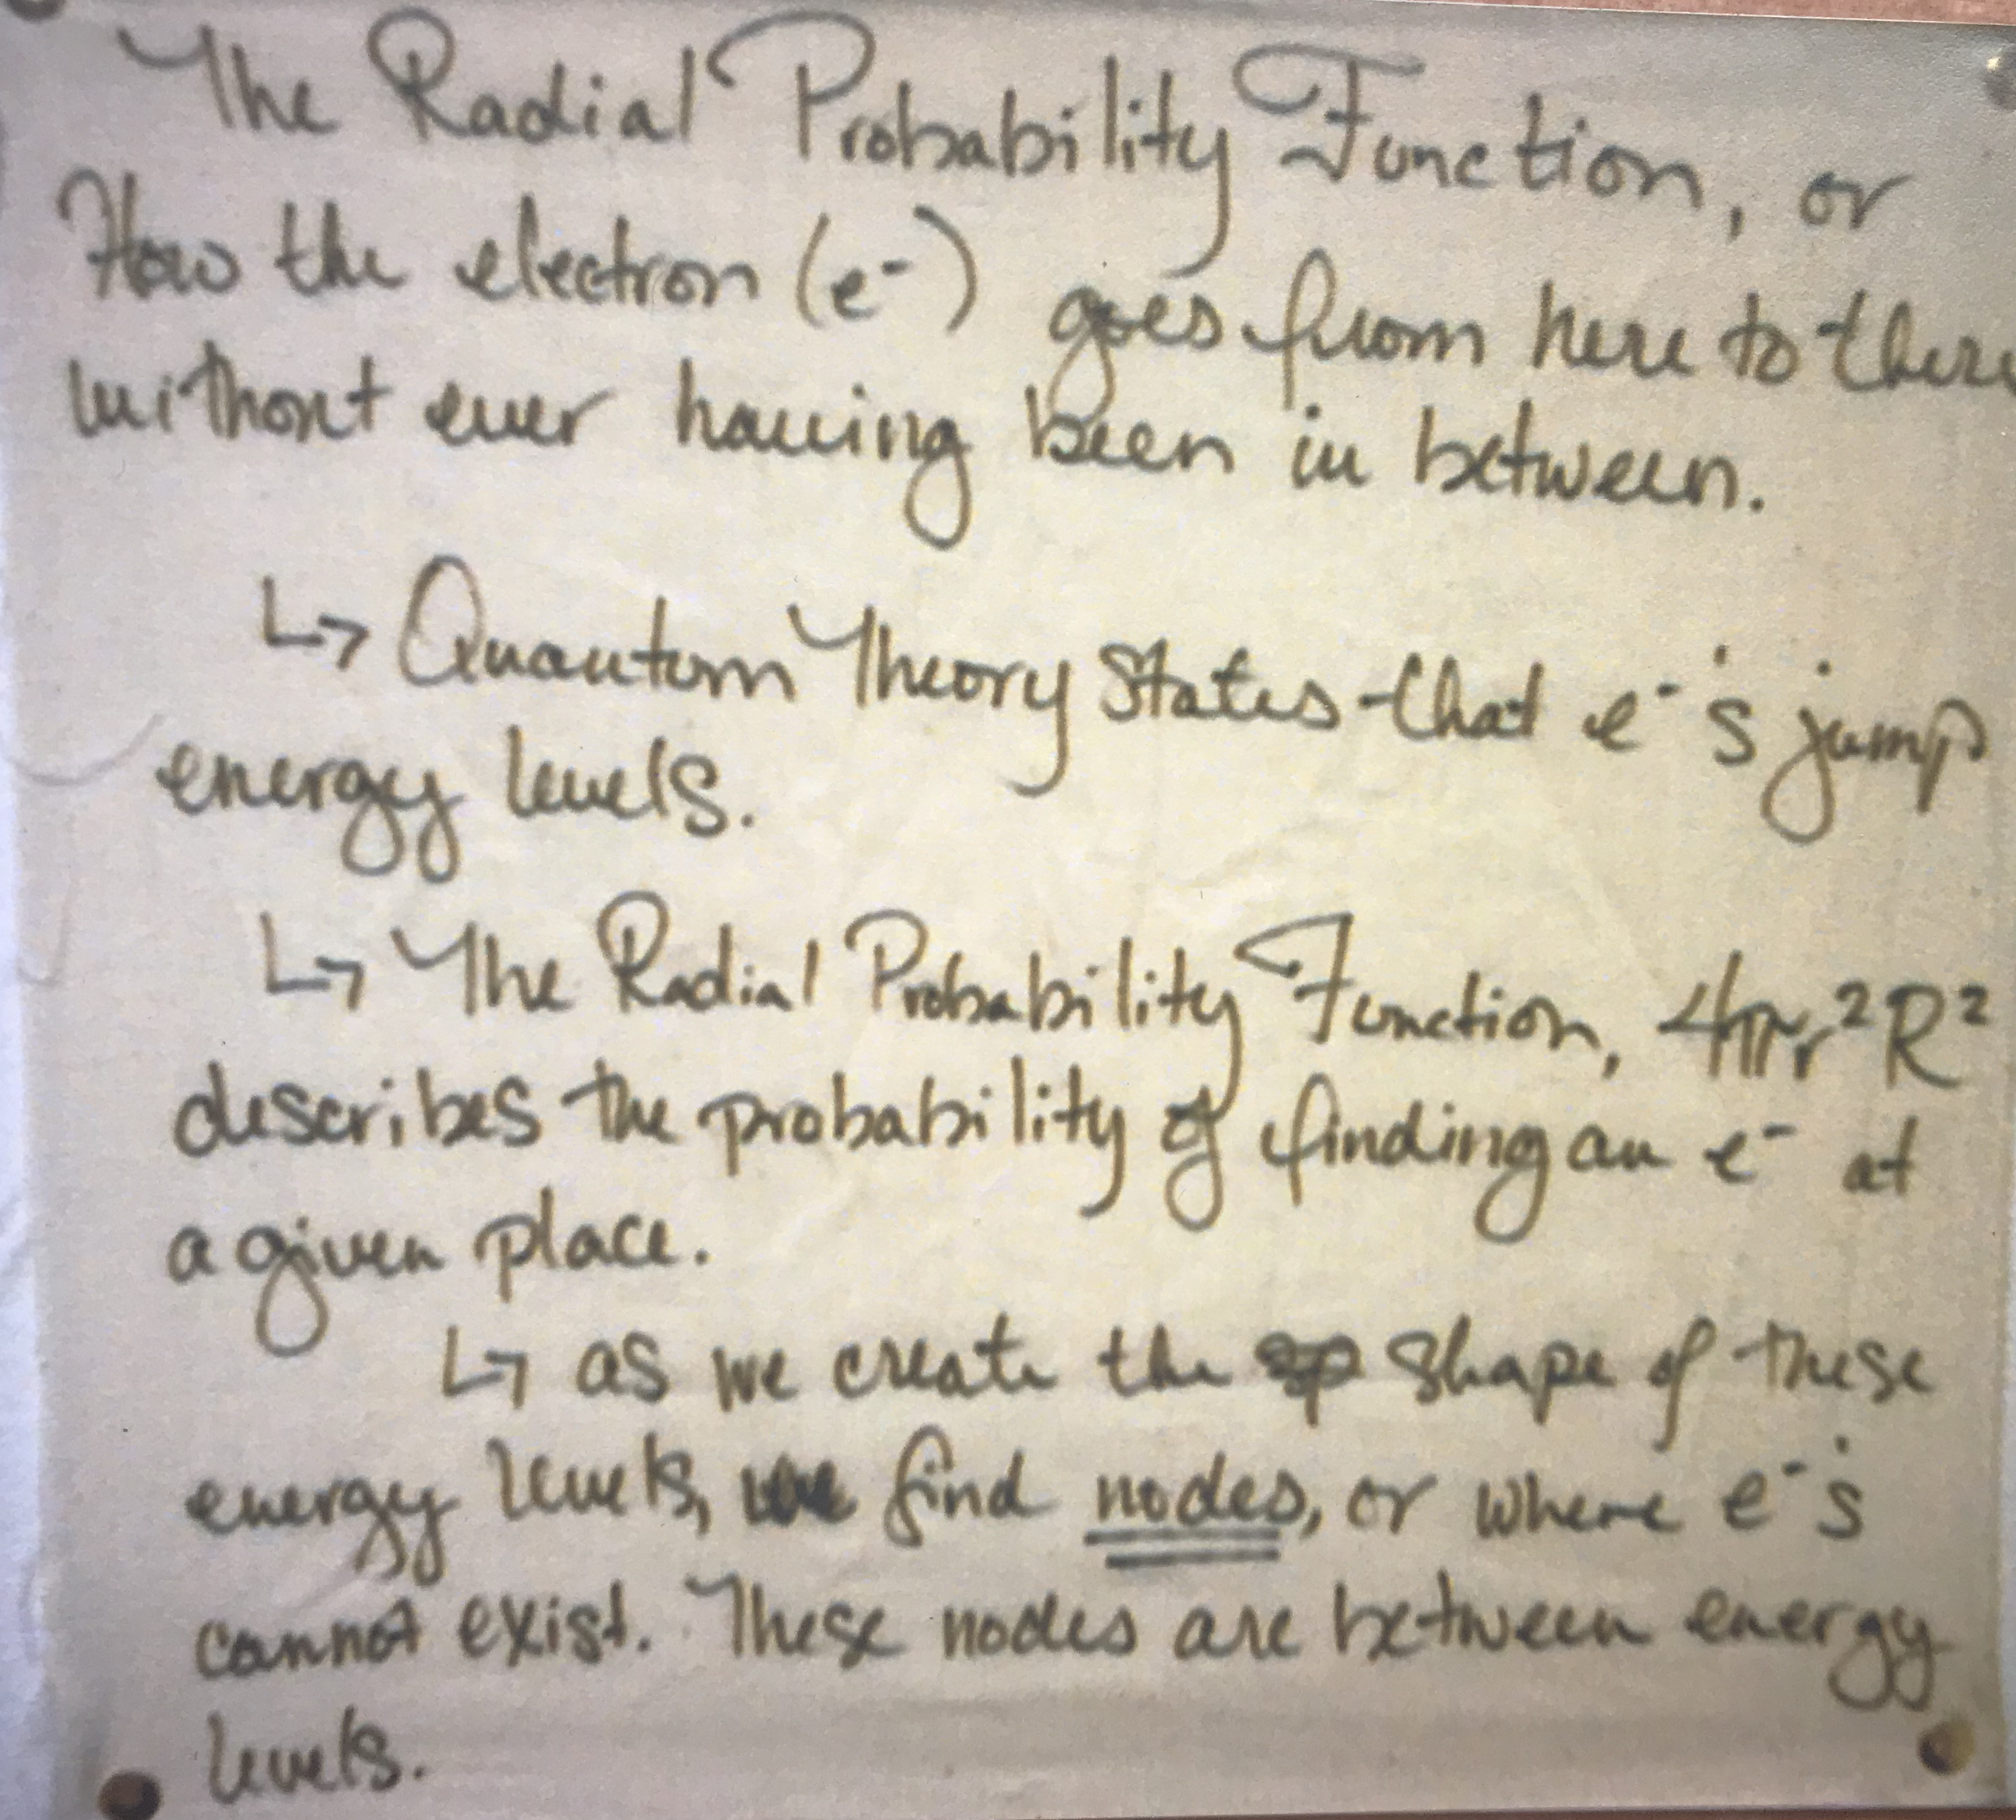 The Radial Probability Function, or
How the electron (e⁻) goes from here to there
without ever having been in between.
↳ Quantum Theory States that e⁻'s jump
energy levels.
↳ The Radial Probability Function, 4πr²R²
describes the probability of finding an e⁻ at
a given place.
↳ as we create the shape of these
energy levels, we find nodes, or where e⁻'s
cannot exist. These nodes are between energy
levels.